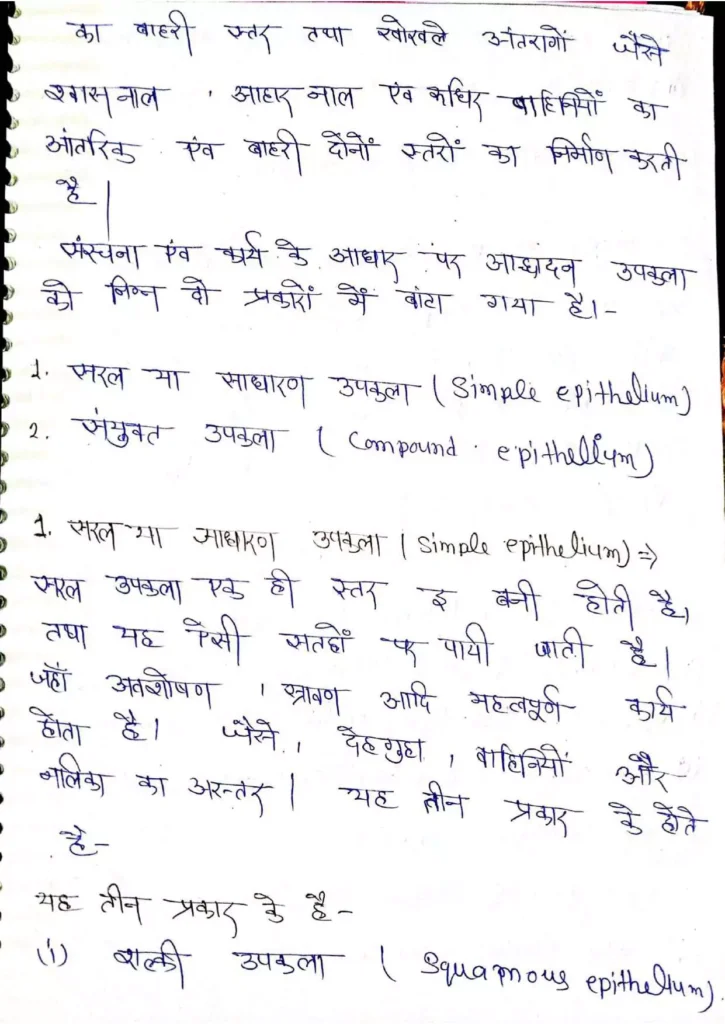 का बाहरी स्तर तथा खोखले अंतरागों जैसे
श्वासनाल , आहार नाल एंव रूधिर वाहिनियों का
आंतरिक एंव बाहरी दोनों स्तरों का निर्माण करती
है |
संरचना एंव कार्य के आधार पर आच्छादन उपकला
को निम्न दो प्रकारों में बांटा गया है।-
1. सरल या साधारण उपकला ( Simple epithelium)
2. संयुक्त उपकला ( Compound . epithelium)
1. सरल या साधारण उपकला ( Simple epithelium) ⇒
सरल उपकला एक ही स्तर इ बनी होती है,
तथा यह ऐसी सतहों पर पायी जाती है |
जहाँ अवशोषण , स्त्रावण आदि महत्वपूर्ण कार्य
होता है। जैसे , देहगुहा , वाहिनियों और
नलिका का अस्तर | यह तीन प्रकार के होते
है-
यह तीन प्रकार के है-
(i) शल्की उपकला ( Squamous epithelium).